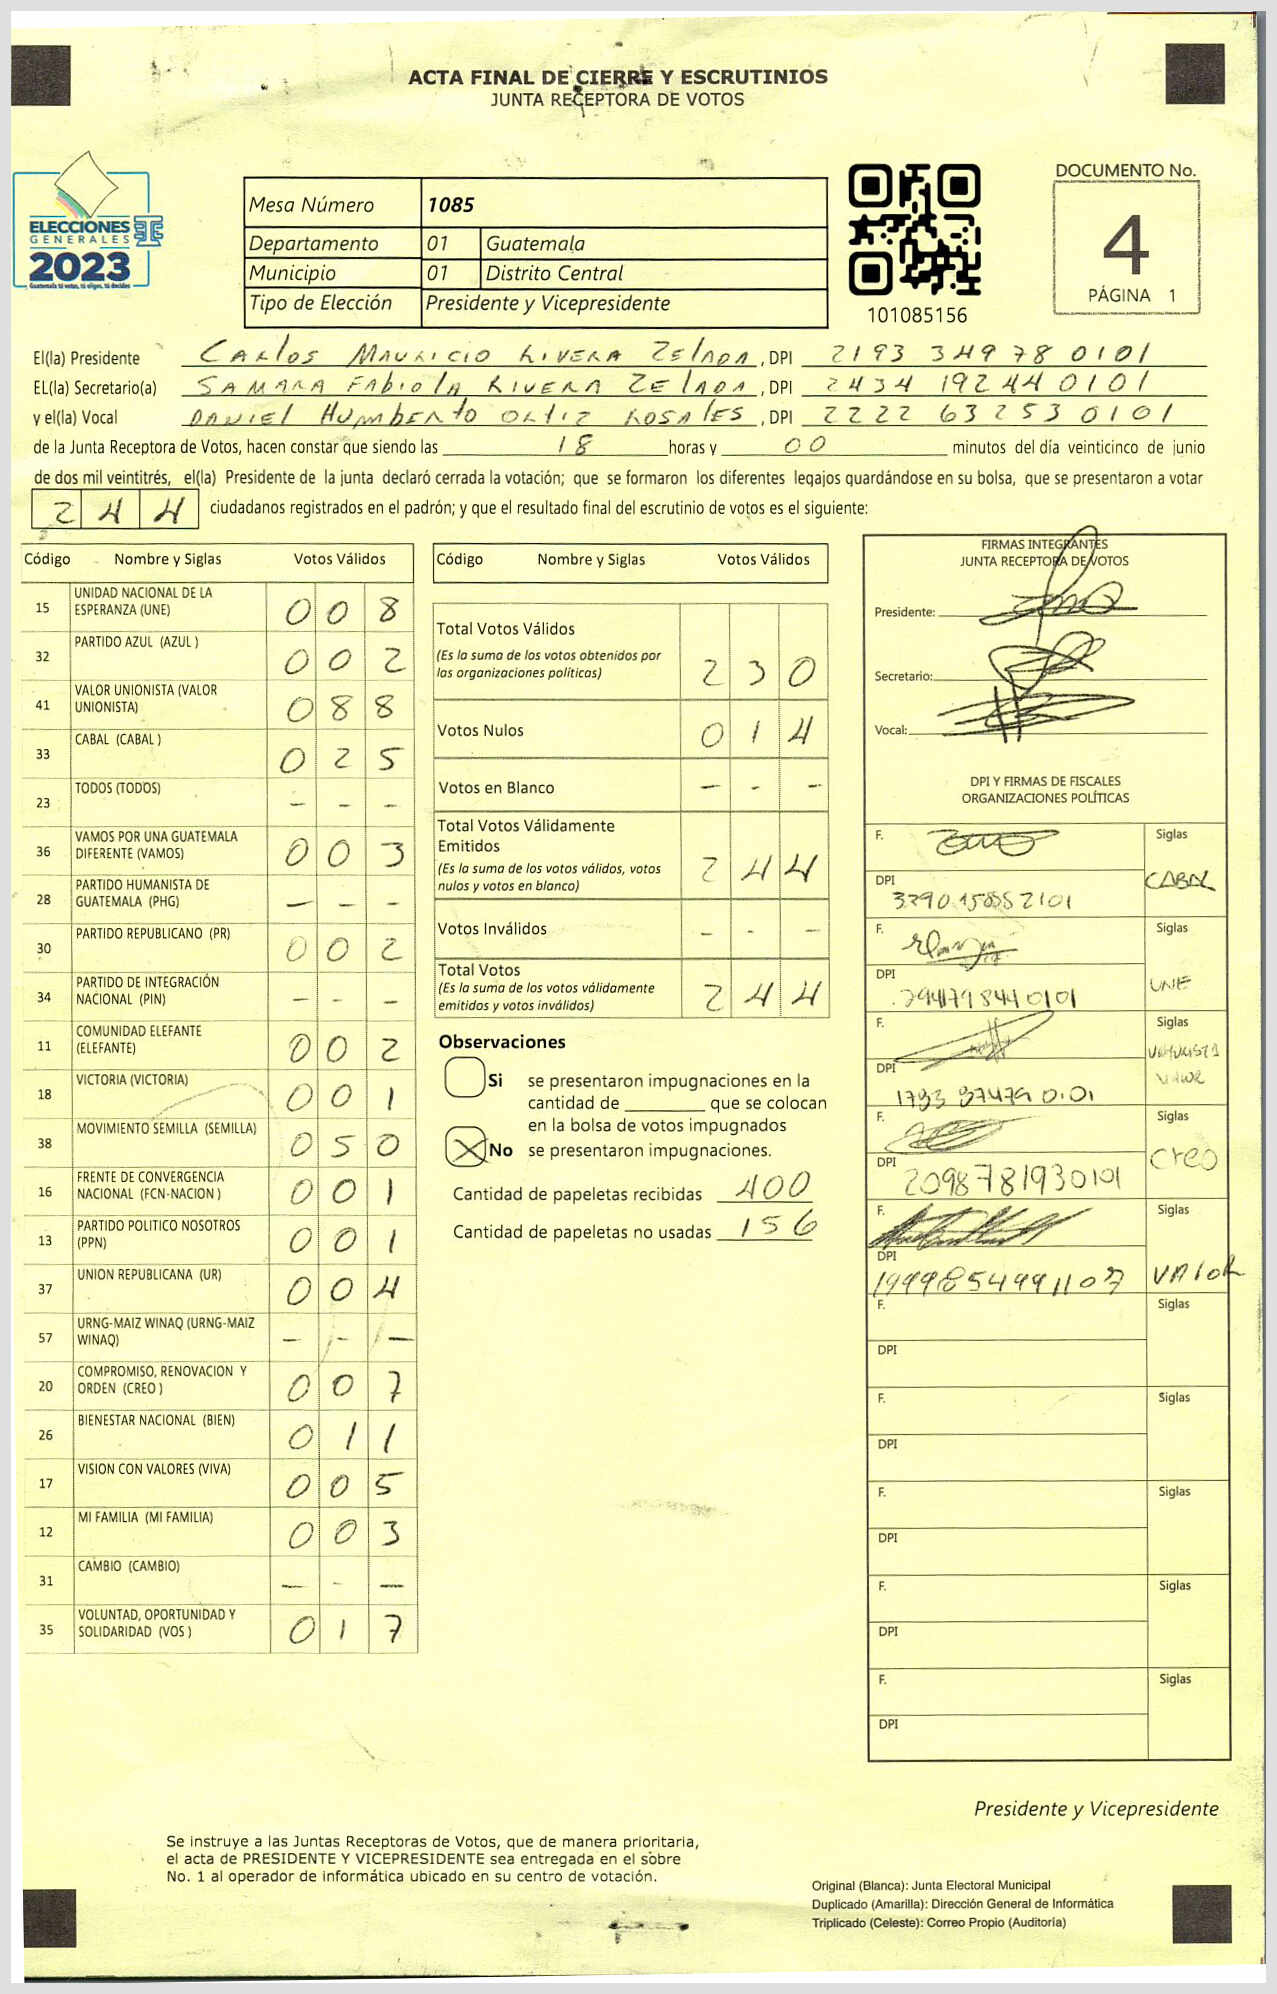 ACTA FINAL DE CIERRE Y ESCRUTINIOS
JUNTA RECEPTORA DE VOTOS
ELECCIONES
GENERALES
2023
Guatemala tú votas, tú eliges, tú decides
Mesa Número 1085
Departamento 01 Guatemala
Municipio 01 Distrito Central
Tipo de Elección Presidente y Vicepresidente
101085156
DOCUMENTO No.
4
PÁGINA 1
El(la) Presidente CARLOS MAURICIO RIVERA ZELADA, DPI 2193 34978 0101
EL(la) Secretario(a) SAMARA FABIOLA RIVERA ZELADA, DPI 2434 19244 0101
y el(la) Vocal DANIEL HUMBERTO ORTIZ ROSALES, DPI 2222 63253 0101
de la Junta Receptora de Votos, hacen constar que siendo las 18 horas y 00 minutos del día veinticinco de junio
de dos mil veintitrés, el(la) Presidente de la junta declaró cerrada la votación; que se formaron los diferentes legajos guardándose en su bolsa, que se presentaron a votar
244 ciudadanos registrados en el padrón; y que el resultado final del escrutinio de votos es el siguiente:
Código Nombre y Siglas Votos Válidos
15 UNIDAD NACIONAL DE LA ESPERANZA (UNE) 008
32 PARTIDO AZUL (AZUL ) 002
41 VALOR UNIONISTA (VALOR UNIONISTA) 088
33 CABAL (CABAL ) 025
23 TODOS (TODOS) - - -
36 VAMOS POR UNA GUATEMALA DIFERENTE (VAMOS) 003
28 PARTIDO HUMANISTA DE GUATEMALA (PHG) - - -
30 PARTIDO REPUBLICANO (PR) 002
34 PARTIDO DE INTEGRACIÓN NACIONAL (PIN) - - -
11 COMUNIDAD ELEFANTE (ELEFANTE) 002
18 VICTORIA (VICTORIA) 001
38 MOVIMIENTO SEMILLA (SEMILLA) 050
16 FRENTE DE CONVERGENCIA NACIONAL (FCN-NACION ) 001
13 PARTIDO POLITICO NOSOTROS (PPN) 001
37 UNION REPUBLICANA (UR) 004
57 URNG-MAIZ WINAQ (URNG-MAIZ WINAQ) - - -
20 COMPROMISO, RENOVACION Y ORDEN (CREO ) 007
26 BIENESTAR NACIONAL (BIEN) 011
17 VISION CON VALORES (VIVA) 005
12 MI FAMILIA (MI FAMILIA) 003
31 CAMBIO (CAMBIO) - - -
35 VOLUNTAD, OPORTUNIDAD Y SOLIDARIDAD (VOS ) 017
Código Nombre y Siglas Votos Válidos
Total Votos Válidos 230
(Es la suma de los votos obtenidos por
las organizaciones políticas)
Votos Nulos 014
Votos en Blanco - - -
Total Votos Válidamente
Emitidos 244
(Es la suma de los votos válidos, votos
nulos y votos en blanco)
Votos Inválidos - - -
Total Votos 244
(Es la suma de los votos válidamente
emitidos y votos inválidos)
Observaciones
Si se presentaron impugnaciones en la
cantidad de ________ que se colocan
en la bolsa de votos impugnados
X No se presentaron impugnaciones.
Cantidad de papeletas recibidas 400
Cantidad de papeletas no usadas 156
FIRMAS INTEGRANTES
JUNTA RECEPTORA DE VOTOS
Presidente:
Secretario:
Vocal:
DPI Y FIRMAS DE FISCALES
ORGANIZACIONES POLÍTICAS
F. Siglas
DPI CABAL
F. Siglas
DPI UNE
F. Siglas
DPI
F. Siglas
DPI 2098781930101 Creo
F. Siglas
DPI 1999854991107 VALOR
F. Siglas
DPI
F. Siglas
DPI
F. Siglas
DPI
F. Siglas
DPI
F. Siglas
DPI
Presidente y Vicepresidente
Se instruye a las Juntas Receptoras de Votos, que de manera prioritaria,
el acta de PRESIDENTE Y VICEPRESIDENTE sea entregada en el sobre
No. 1 al operador de informática ubicado en su centro de votación.
Original (Blanca): Junta Electoral Municipal
Duplicado (Amarilla): Dirección General de Informática
Triplicado (Celeste): Correo Propio (Auditoría)